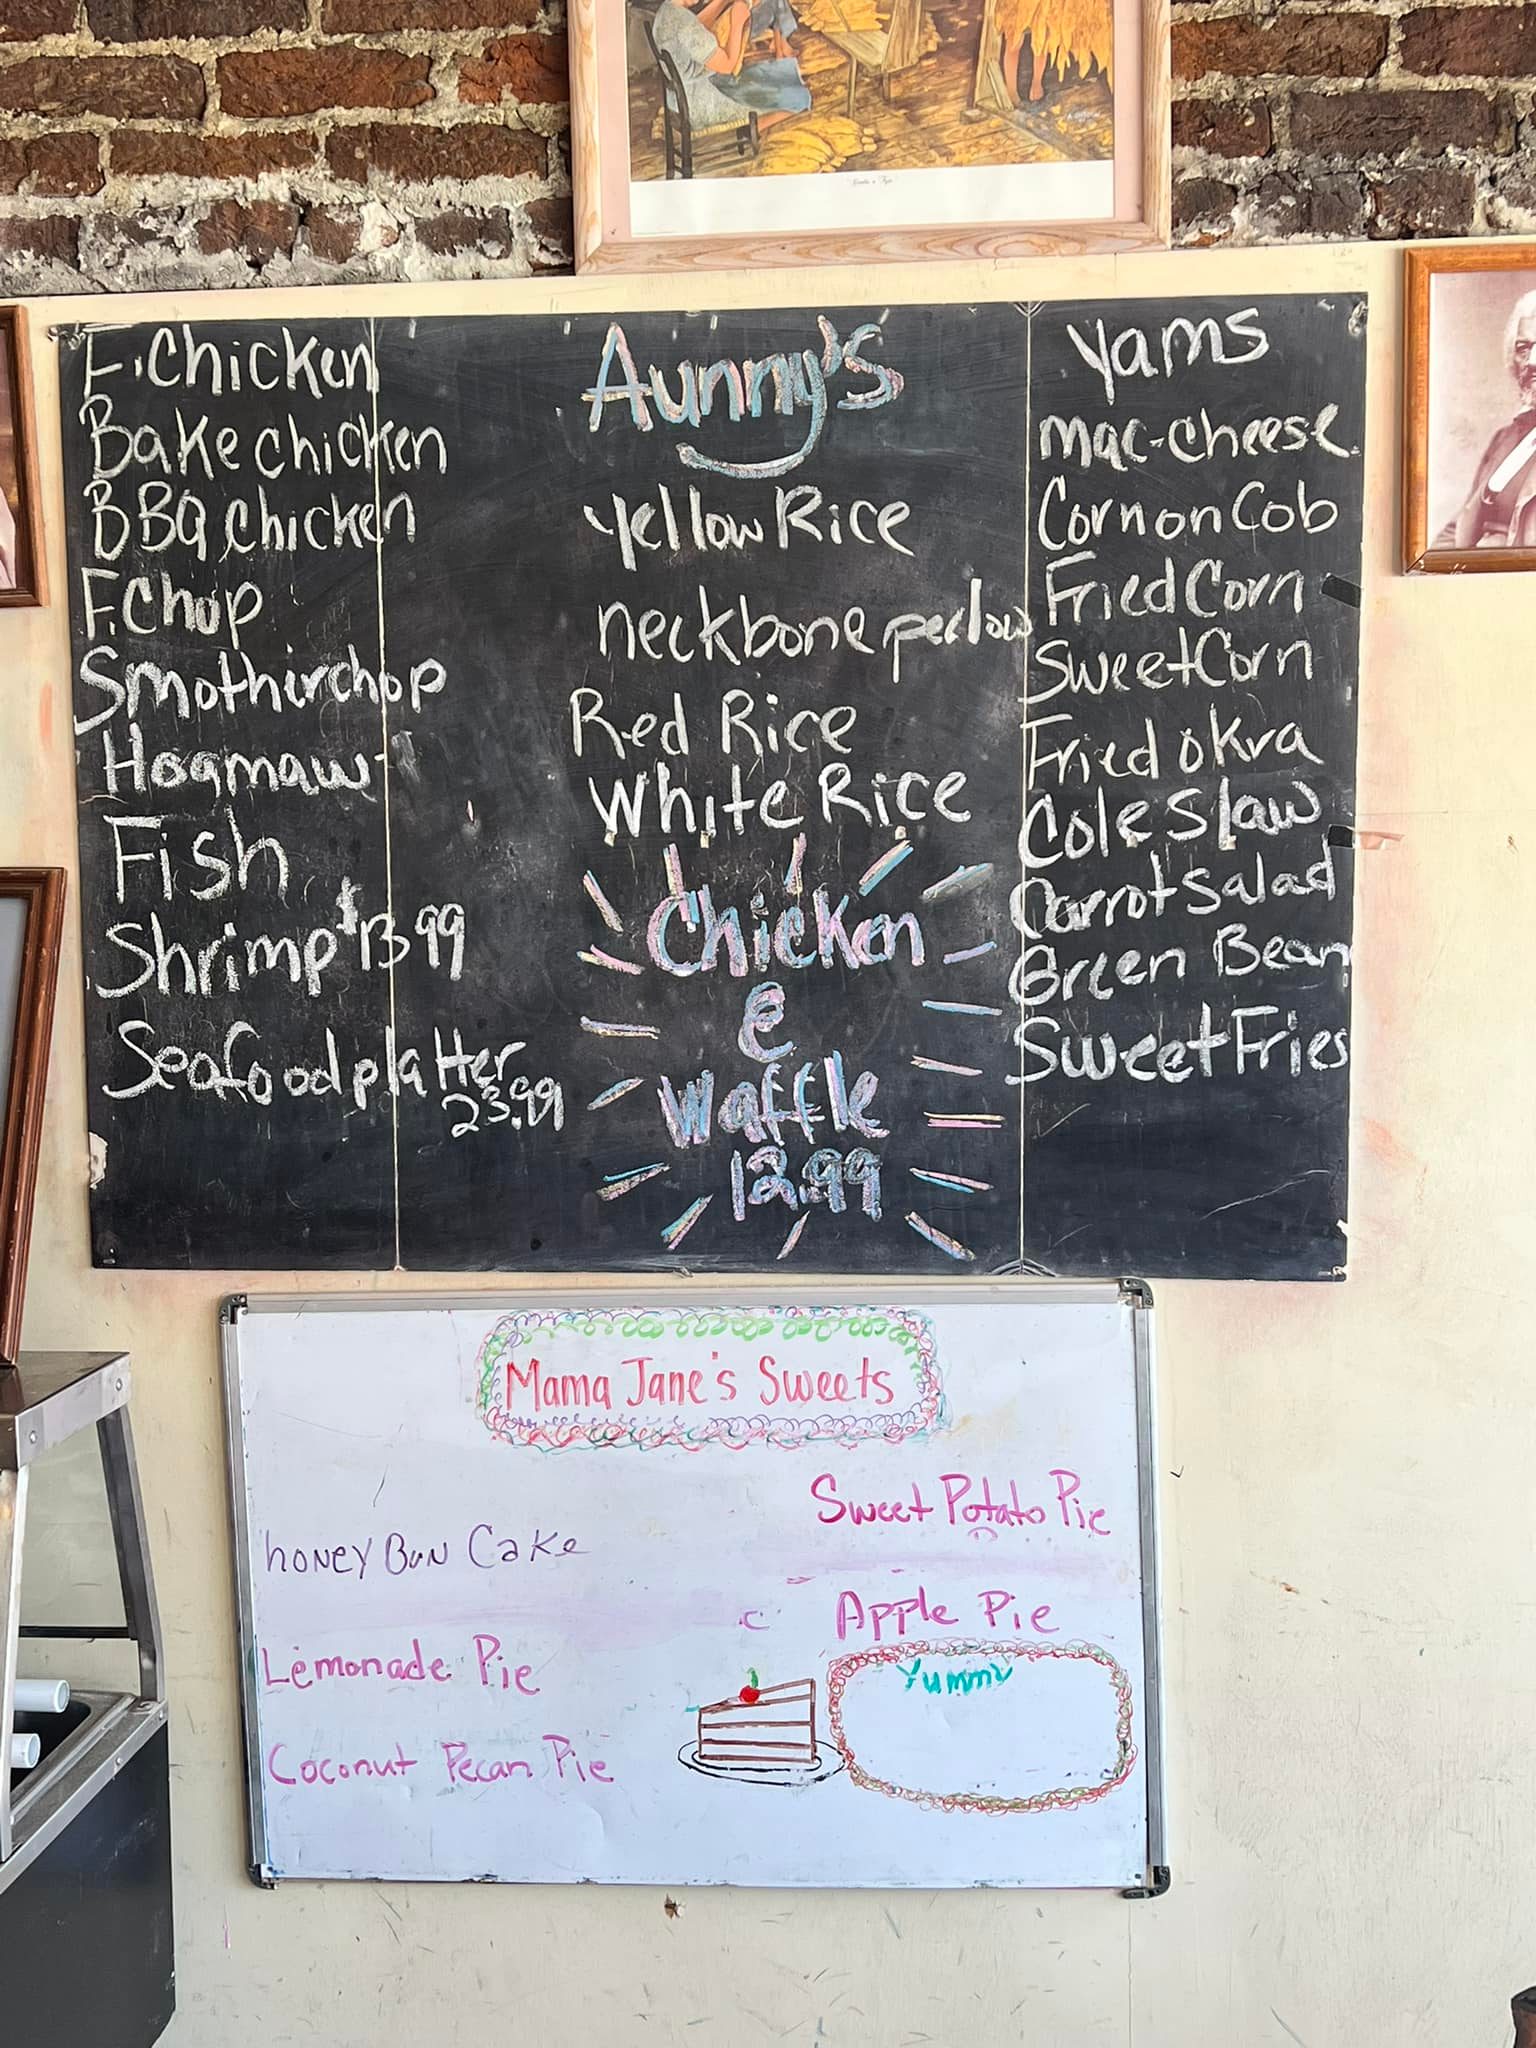 F. Chicken
Bake chicken
BBQ chicken
F. Chop
Smothirchop
Hogmaw
Fish
Shrimp $13.99
Seafood platter
23.99
Aunny's
Yellow Rice
neckbone perlow
Red Rice
White Rice
Chicken
e
Waffle
12.99
Yams
mac-cheese
Corn on Cob
Fried Corn
Sweet Corn
Fried okra
Cole Slaw
Carrot Salad
Green Bean
Sweet Fries
Mama Jane's Sweets
honey Bun Cake
Lemonade Pie
Coconut Pecan Pie
Sweet Potato Pie
Apple Pie
Yummy